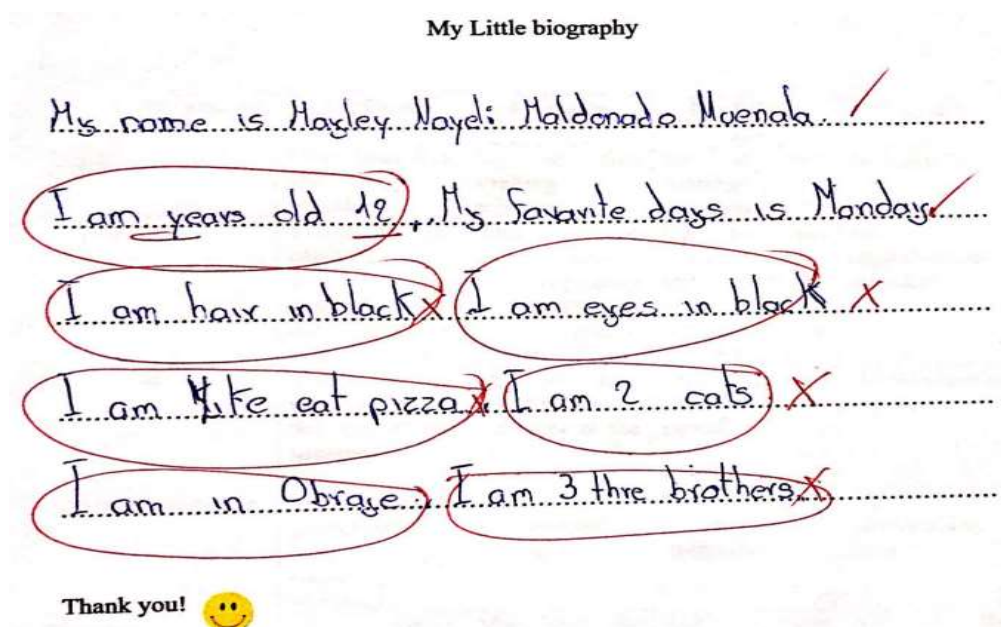 My Little biography
My name is Hayley Nayeli Maldonado Muenala.
I am years old 12, My favante days is Monday.
I am hair in black. I am eyes in black
I am like eat pizza. I am 2 cats
I am in Obraje. I am 3 thre brothers.
Thank you!